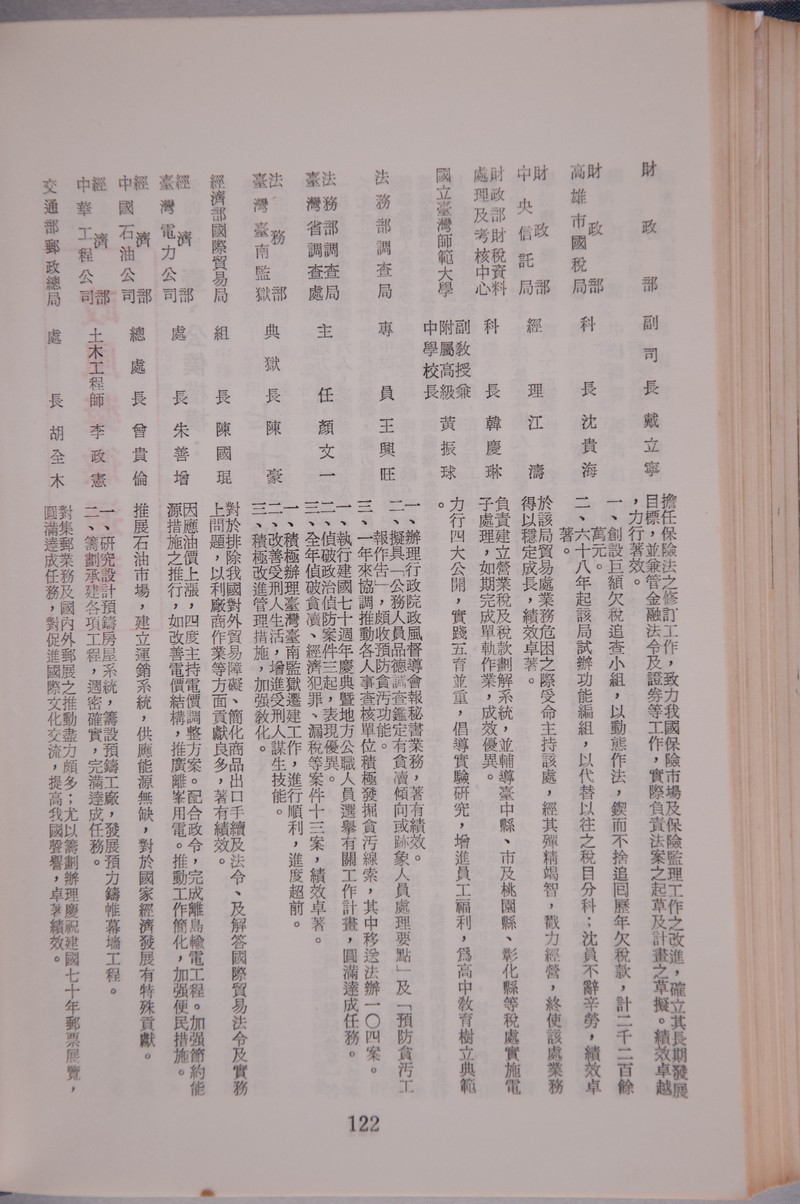 財政部
副司長
戴立寧
擔任保險法之修訂工作，致力我國保險市場及保險監理工作之改進，確立其長期發展
目標，並兼管金融法令及證券等工作，實際負責法案之起草及計畫之草擬。績效卓越
，力行著效。
財政部
高雄市國稅局
科長
沈貴海
一、創設巨額欠稅追查小組，以動態作法，鍥而不捨追回歷年欠稅款，計二千二百餘
萬元。
二、六十八年起該局試辦功能編組，以代替以往之稅目分科；沈員不辭辛勞，績效卓
著。
財政部
中央信託局
經理
江濤
於該局貿易處業務危困之際受命主持該處，經其殫精竭智，戳力經營，終使該處業務
得以穩定成長，績效卓著。
財政部財稅資料
處理及考核中心
科長
韓慶琳
負責建立營業稅及稅款劃解系統，並輔導臺中縣、市及桃園縣、彰化縣等稅處實施電
子處理，如期完成單軌作業，成效優異。
國立臺灣師範大學
副教授兼
附屬高級
中學校長
黃振球
力行四大公開，實踐五育並重，倡導實驗研究，增進員工福利，爲高中敎育樹立典範
。
法務部調查局
專員
王興旺
一、辦理行政院政風督導會報秘書業務，著有績效。
二、擬具「公務人員品德調查鑑定有貪瀆傾向或跡象人員處理要點」及「預防貪汚工
報作告」，頗收預防貪汚功能。
三、一年來協調推動各人事查核單位積極發掘貪汚線索，其中移送法辦一〇四案。
法務部調查局
臺灣省調查處
主任
顏文一
一、執行建國七十週年慶典暨地方公職人員選舉有關工作計畫，圓滿達成任務。
二、偵破政治偵防案件三起，表現優異。
三、全年偵破貪瀆、經濟犯罪、漏稅等案件十三案，績效卓著。
法務部
臺灣臺南監獄
典獄長
陳豪
一、積極辦理臺灣臺南監獄遷建工作，進行順利，進度超前。
二、改善受刑人生活，增進受刑人謀生技能。
三、積極改進管理措施，加强敎化。
經濟部國際貿易局
組長
陳國琨
對於排除我國對外貿易障礙、簡化商品出口手續及法令、及解答國際貿易法令及實務
上問題，以利廠商作業等方面貢獻良多，著有績效。
經濟部
臺灣電力公司
處長
朱善增
因應油價上漲，四度主持電價調整方案。配合政令，完成離島輸電工程。加强節約能
源措施之推行，如改善電價結構，推廣離峯用電。推動工作簡化，加强便民措施。
經濟部
中國石油公司
總處長
曾貴倫
推展石油市場，建立運銷系統，供應能源無缺，對於國家經濟發展有特殊貢獻。
經濟部
中華工程公司
土木工程師
李政憲
一、研究設計預鑄房屋系統，籌設預鑄工廠，發展預力鑄帷幕墻工程。
二、籌劃承建各項工程，週密確實，完滿達成任務。
交通部郵政總局
處長
胡全木
對集郵業務及國內外郵展之推動盡力頗多；尤以籌劃辦理慶祝建國七十年郵票展覽，
圓滿達成任務，對促進國際文化交流，提高我國聲譽，卓著績效。
122